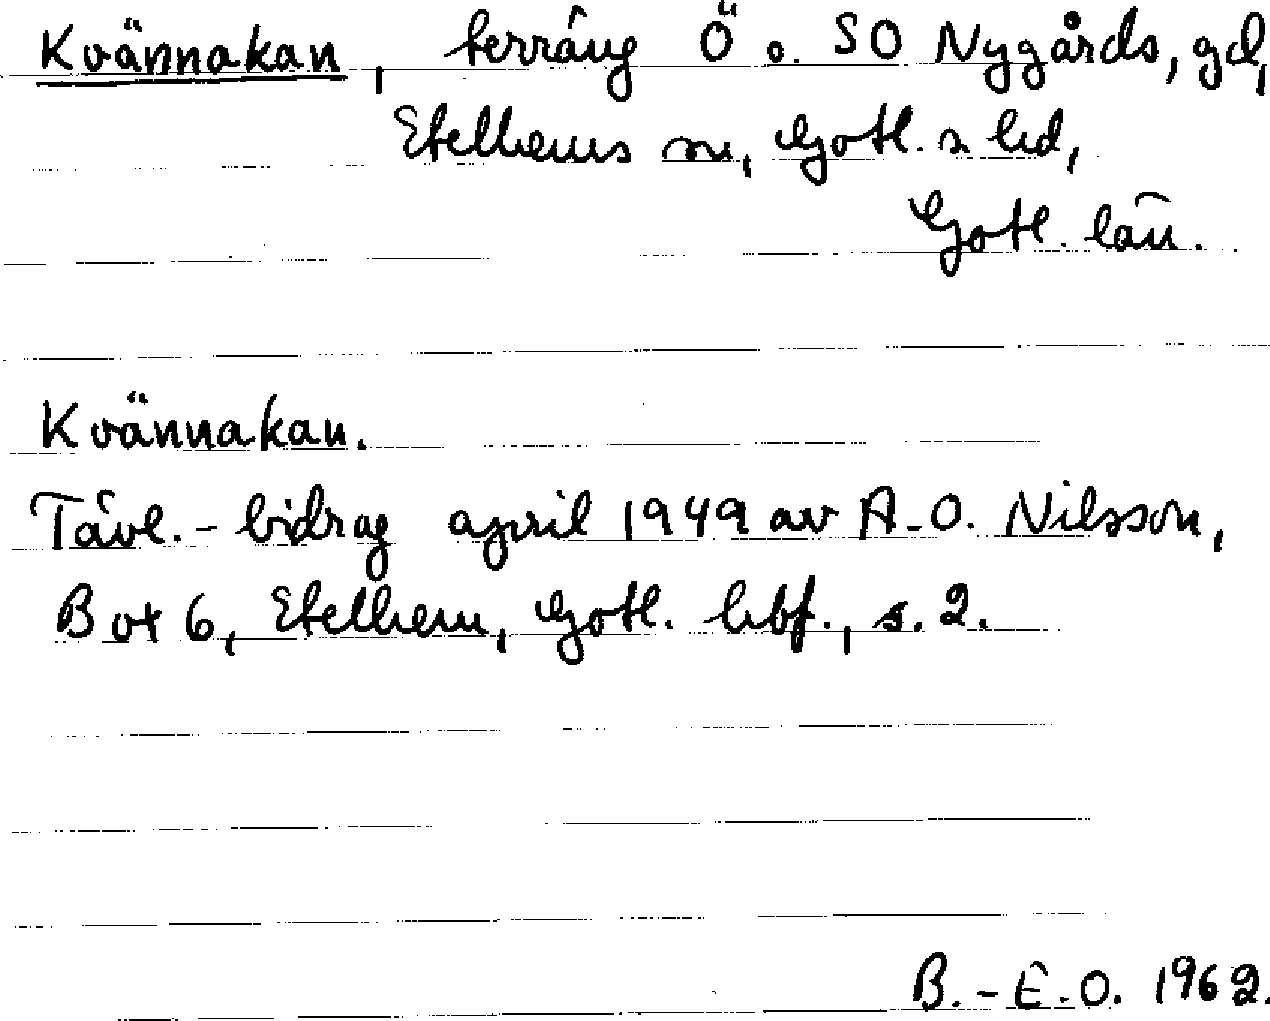 Kvännakan, terräng Ö o. SO Nygårds, gd,
Etelhems sn, Gotl. s hd,
Gotl. län.
Kvännakan.
Tävl.-bidrag april 1949 av A-O. Nilsson,
Box 6, Etelhem, Gotl. hbf., s. 2.
B.-E.O. 1962.